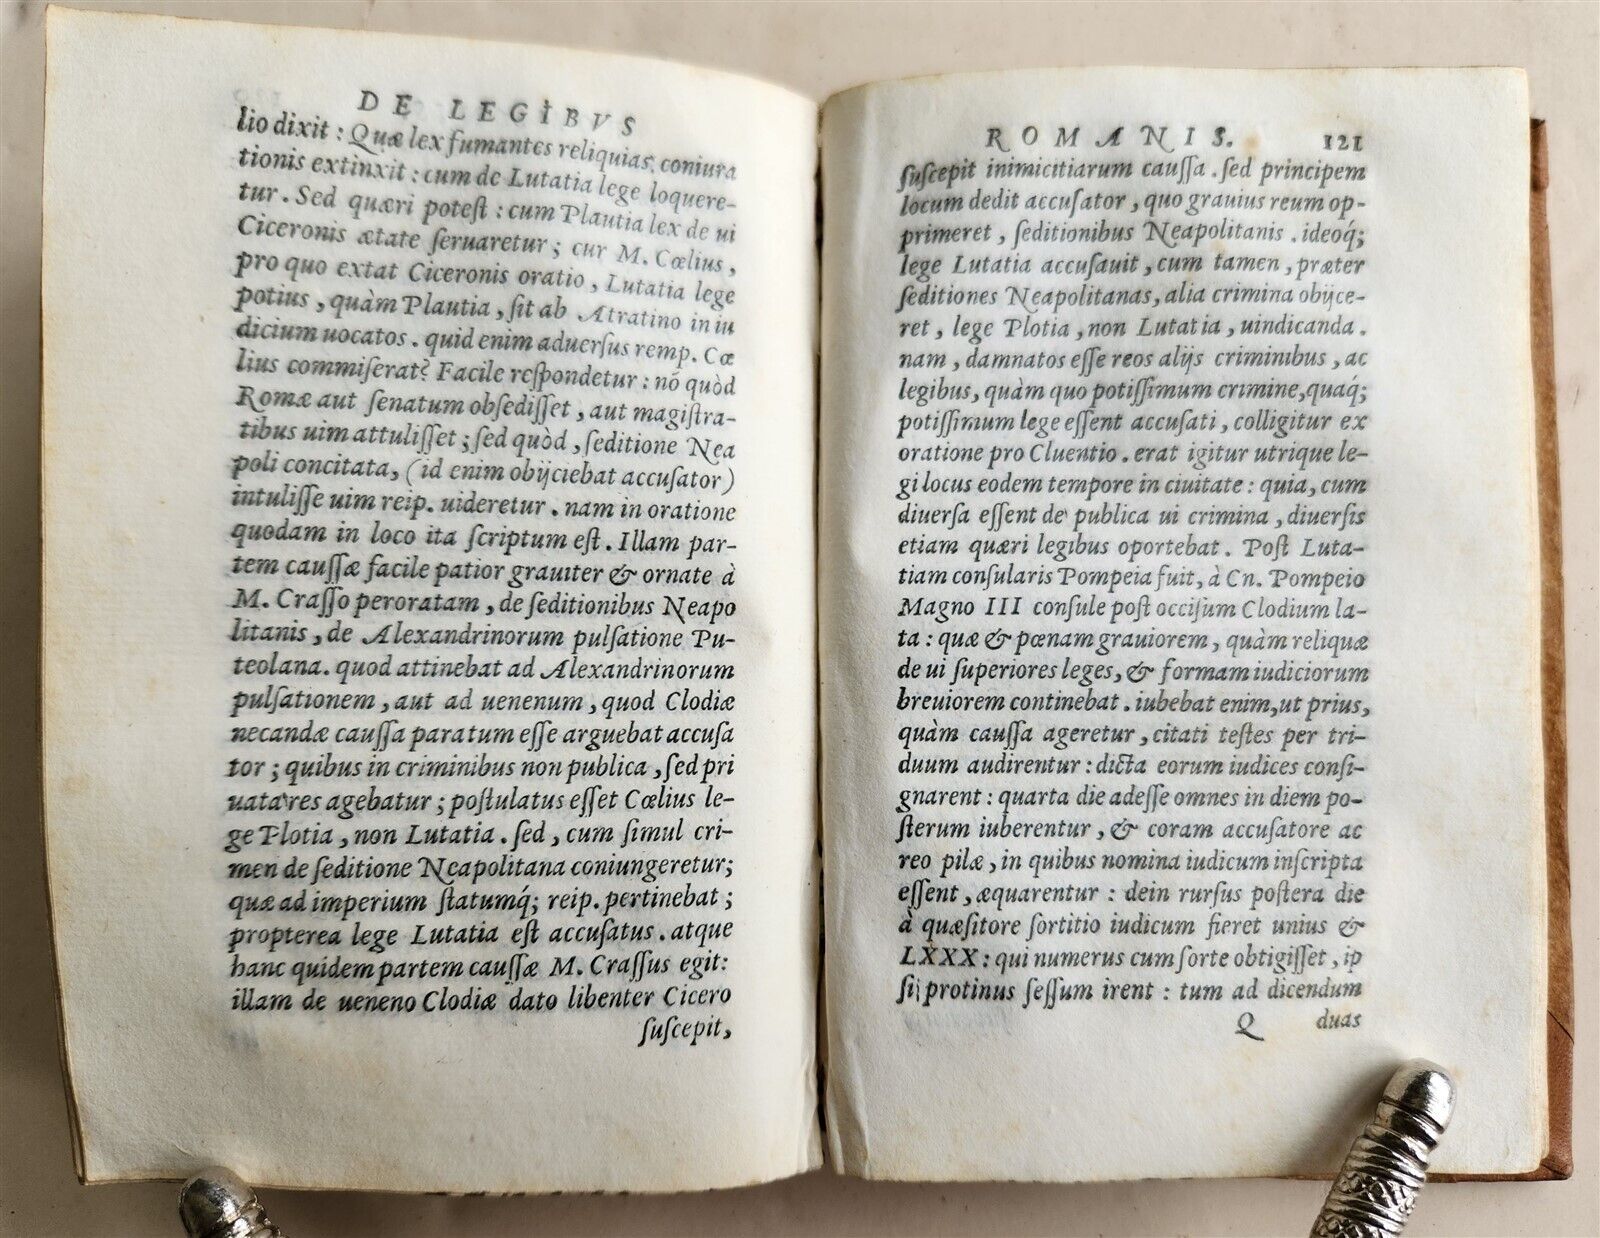 DE LEGIBVS
lio dixit : Quæ lex fumantes reliquias coniura
tionis extinxit : cum de Lutatia lege loquere-
tur . Sed quæri potest : cum Plautia lex de ui
Ciceronis ætate seruaretur ; cur M. Cœlius ,
pro quo extat Ciceronis oratio , Lutatia lege
potius , quàm Plautia , sit ab Atratino in iu
dicium uocatos . quid enim aduersus remp. Cœ
lius commiserat? Facile respondetur : nõ quòd
Romæ aut senatum obsedisset , aut magistra-
tibus uim attulisset ; sed quòd , seditione Nea
poli concitata , ( id enim obijciebat accusator )
intulisse uim reip. uideretur . nam in oratione
quodam in loco ita scriptum est . Illam par-
tem caussæ facile patior grauiter & ornate à
M. Crasso peroratam , de seditionibus Neapo
litanis , de Alexandrinorum pulsatione Pu-
teolana . quod attinebat ad Alexandrinorum
pulsationem , aut ad uenenum , quod Clodiæ
necandæ caussa paratum esse arguebat accusa
tor ; quibus in criminibus non publica , sed pri
uata res agebatur ; postulatus esset Cœlius le-
ge Plotia , non Lutatia . sed , cum simul cri-
men de seditione Neapolitana coniungeretur ;
quæ ad imperium statumq́; reip. pertinebat ;
propterea lege Lutatia est accusatus . atque
hanc quidem partem caussæ M. Crassus egit :
illam de ueneno Clodiæ dato libenter Cicero
suscepit,
ROMANIS. 121
suscepit inimicitiarum caussa . sed principem
locum dedit accusator , quo grauius reum op-
primeret , seditionibus Neapolitanis . ideoq́;
lege Lutatia accusauit , cum tamen , præter
seditiones Neapolitanas , alia crimina obijce-
ret , lege Plotia , non Lutatia , uindicanda .
nam , damnatos esse reos alijs criminibus , ac
legibus , quàm quo potissimum crimine , quaq́;
potissimum lege essent accusati , colligitur ex
oratione pro Cluentio . erat igitur utrique le-
gi locus eodem tempore in ciuitate : quia , cum
diuersa essent de publica ui crimina , diuersis
etiam quæri legibus oportebat . Post Luta-
tiam consularis Pompeia fuit , à Cn. Pompeio
Magno III consule post occisum Clodium la-
ta : quæ & pœnam grauiorem , quàm reliquæ
de ui superiores leges , & formam iudiciorum
breuiorem continebat . iubebat enim , ut prius ,
quàm caussa ageretur , citati testes per tri-
duum audirentur : dicta eorum iudices consi-
gnarent : quarta die adesse omnes in diem po-
sterum iuberentur , & coram accusatore ac
reo pilæ , in quibus nomina iudicum inscripta
essent , æquarentur : dein rursus postera die
à quæsitore sortitio iudicum fieret unius &
LXXX : qui numerus cum sorte obtigisset , ip
si protinus sessum irent : tum ad dicendum
Q duas